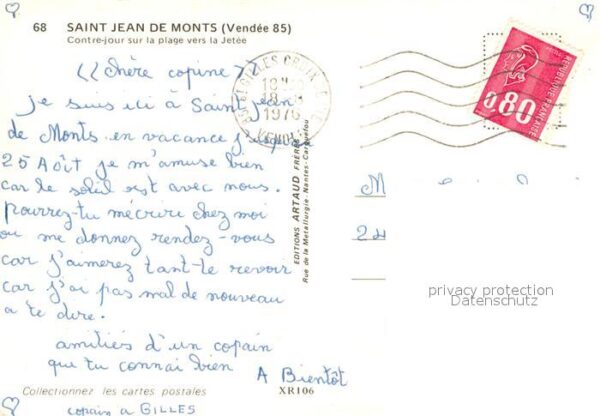 68 SAINT JEAN DE MONTS (Vendée 85)
Contre-jour sur la plage vers la Jetée
((Chère copine))
je suis ici à Saint jean
de Monts en vacance jusqu'au
25 Août je m'amuse bien
car le soleil est avec nous.
pourrez-tu mécrire chez moi
ou me donnez rendez-vous
car j'aimerez tant te revoir
car j'ai pas mal de nouveau
a te dire.
amitiés d'un copain
que tu connai bien
A Bientôt
Collectionnez les cartes postales
XR106
copain a GILLES
EDITIONS ARTAUD FRÈRES
Rue de la Métallurgie-Nantes-Carquefou
18
1976
VENDEE
0,80
REPUBLIQUE FRANÇAISE
M
24
privacy protection
Datenschutz